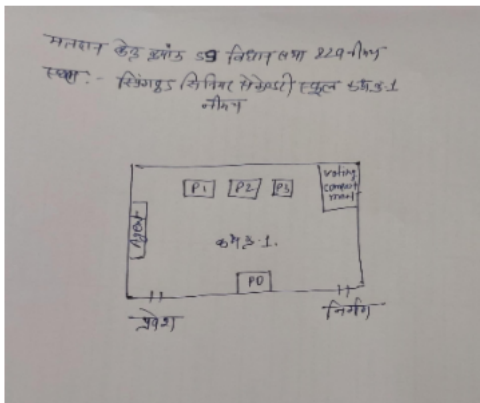 मतदान केन्द्र क्रमांक 59 विधान सभा 229 नीमच
स्थान :- स्प्रिंगवुड सिनियर सेकेण्डरी स्कूल क.क्र.-1
नीमच
P1 P2 P3
voting
compart
ment
Agent
क.क्र.-1.
PO
प्रवेश
निर्गम